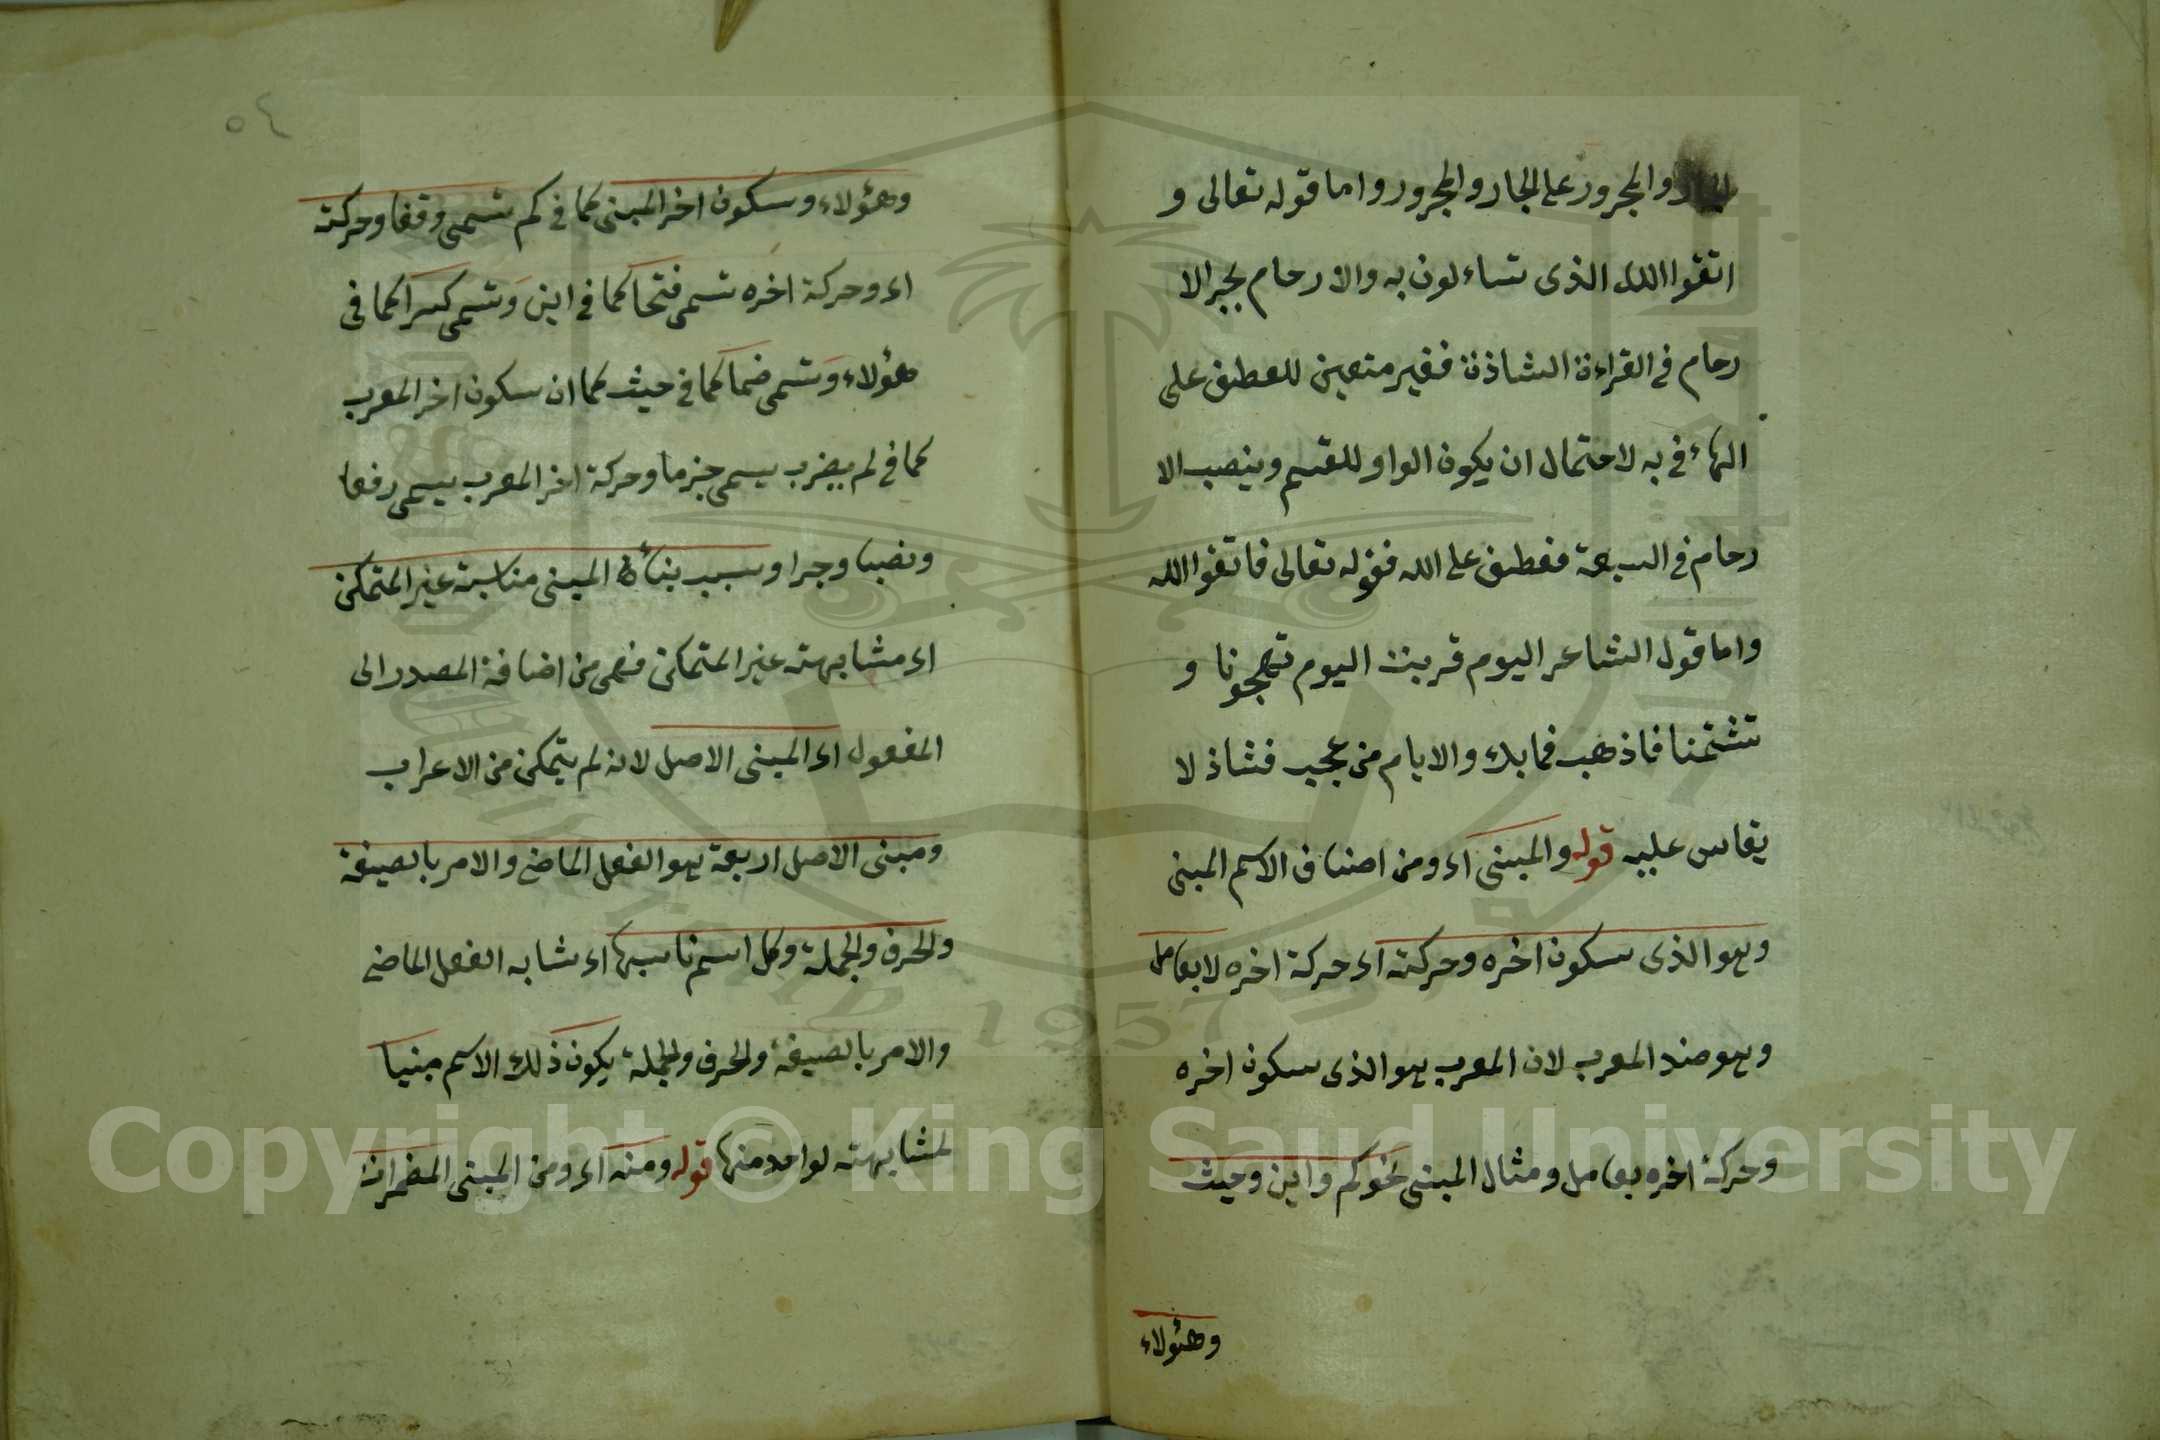 الجار والمجرور على الجار والمجرور واما قوله تعالى و
اتقوا الله الذى تساءلون به والارحام بجر الا
رحام فى القراءة الشاذة فغير متعين للعطف على
الهاء فى به لاحتمال ان يكون الواو للقسم وبنصب الا
رحام فى السبعة فعطف على الله فقوله تعالى فاتقوا الله
واما قول الشاعر اليوم قربت اليوم تهجونا و
تشتمنا فاذهب فما بك والايام من عجب فشاذ لا
يقاس عليه قوله والمبنى اء ومن اصناف الاسم المبنى
وهو الذى سكون اخره وحركته اء حركة اخره لا بعامل
وهو ضد المعرب لان المعرب هو الذى سكون اخره
وحركة اخره بعامل ومثال المبنى نحو كم واين وحيث
وهئولاء
٥٤
وهئولاء وسكون اخر المبنى كما فى كم تسمى وقفا وحركته
اء وحركة اخره تسمى فتحا كما فى اين وتسمى كسرا كما فى
هئولاء وتسمى ضما كما فى حيث كما ان سكون اخر المعرب
كما فى لم يضرب يسمى جزما وحركة اخر المعرب يسمى رفعا
ونصبا وجرا وسبب بنائه المبنى مناسبة غير المتمكن
اء مشابهته غير المتمكن فهى من اضافة المصدر الى
المفعول اء المبنى الاصل لانه لم يتمكن من الاعراب
ومبنى الاصل اربعة هو الفعل الماضى والامر بالصيغة
والحرف والجملة وكل اسم ناسبها اء شابه الفعل الماضى
والامر بالصيغة والحرف والجملة يكون ذلك الاسم مبنيا
لمشابهته لواحد منها قوله ومنه اء ومن المبنى المضمرات
Copyright © King Saud University
1957